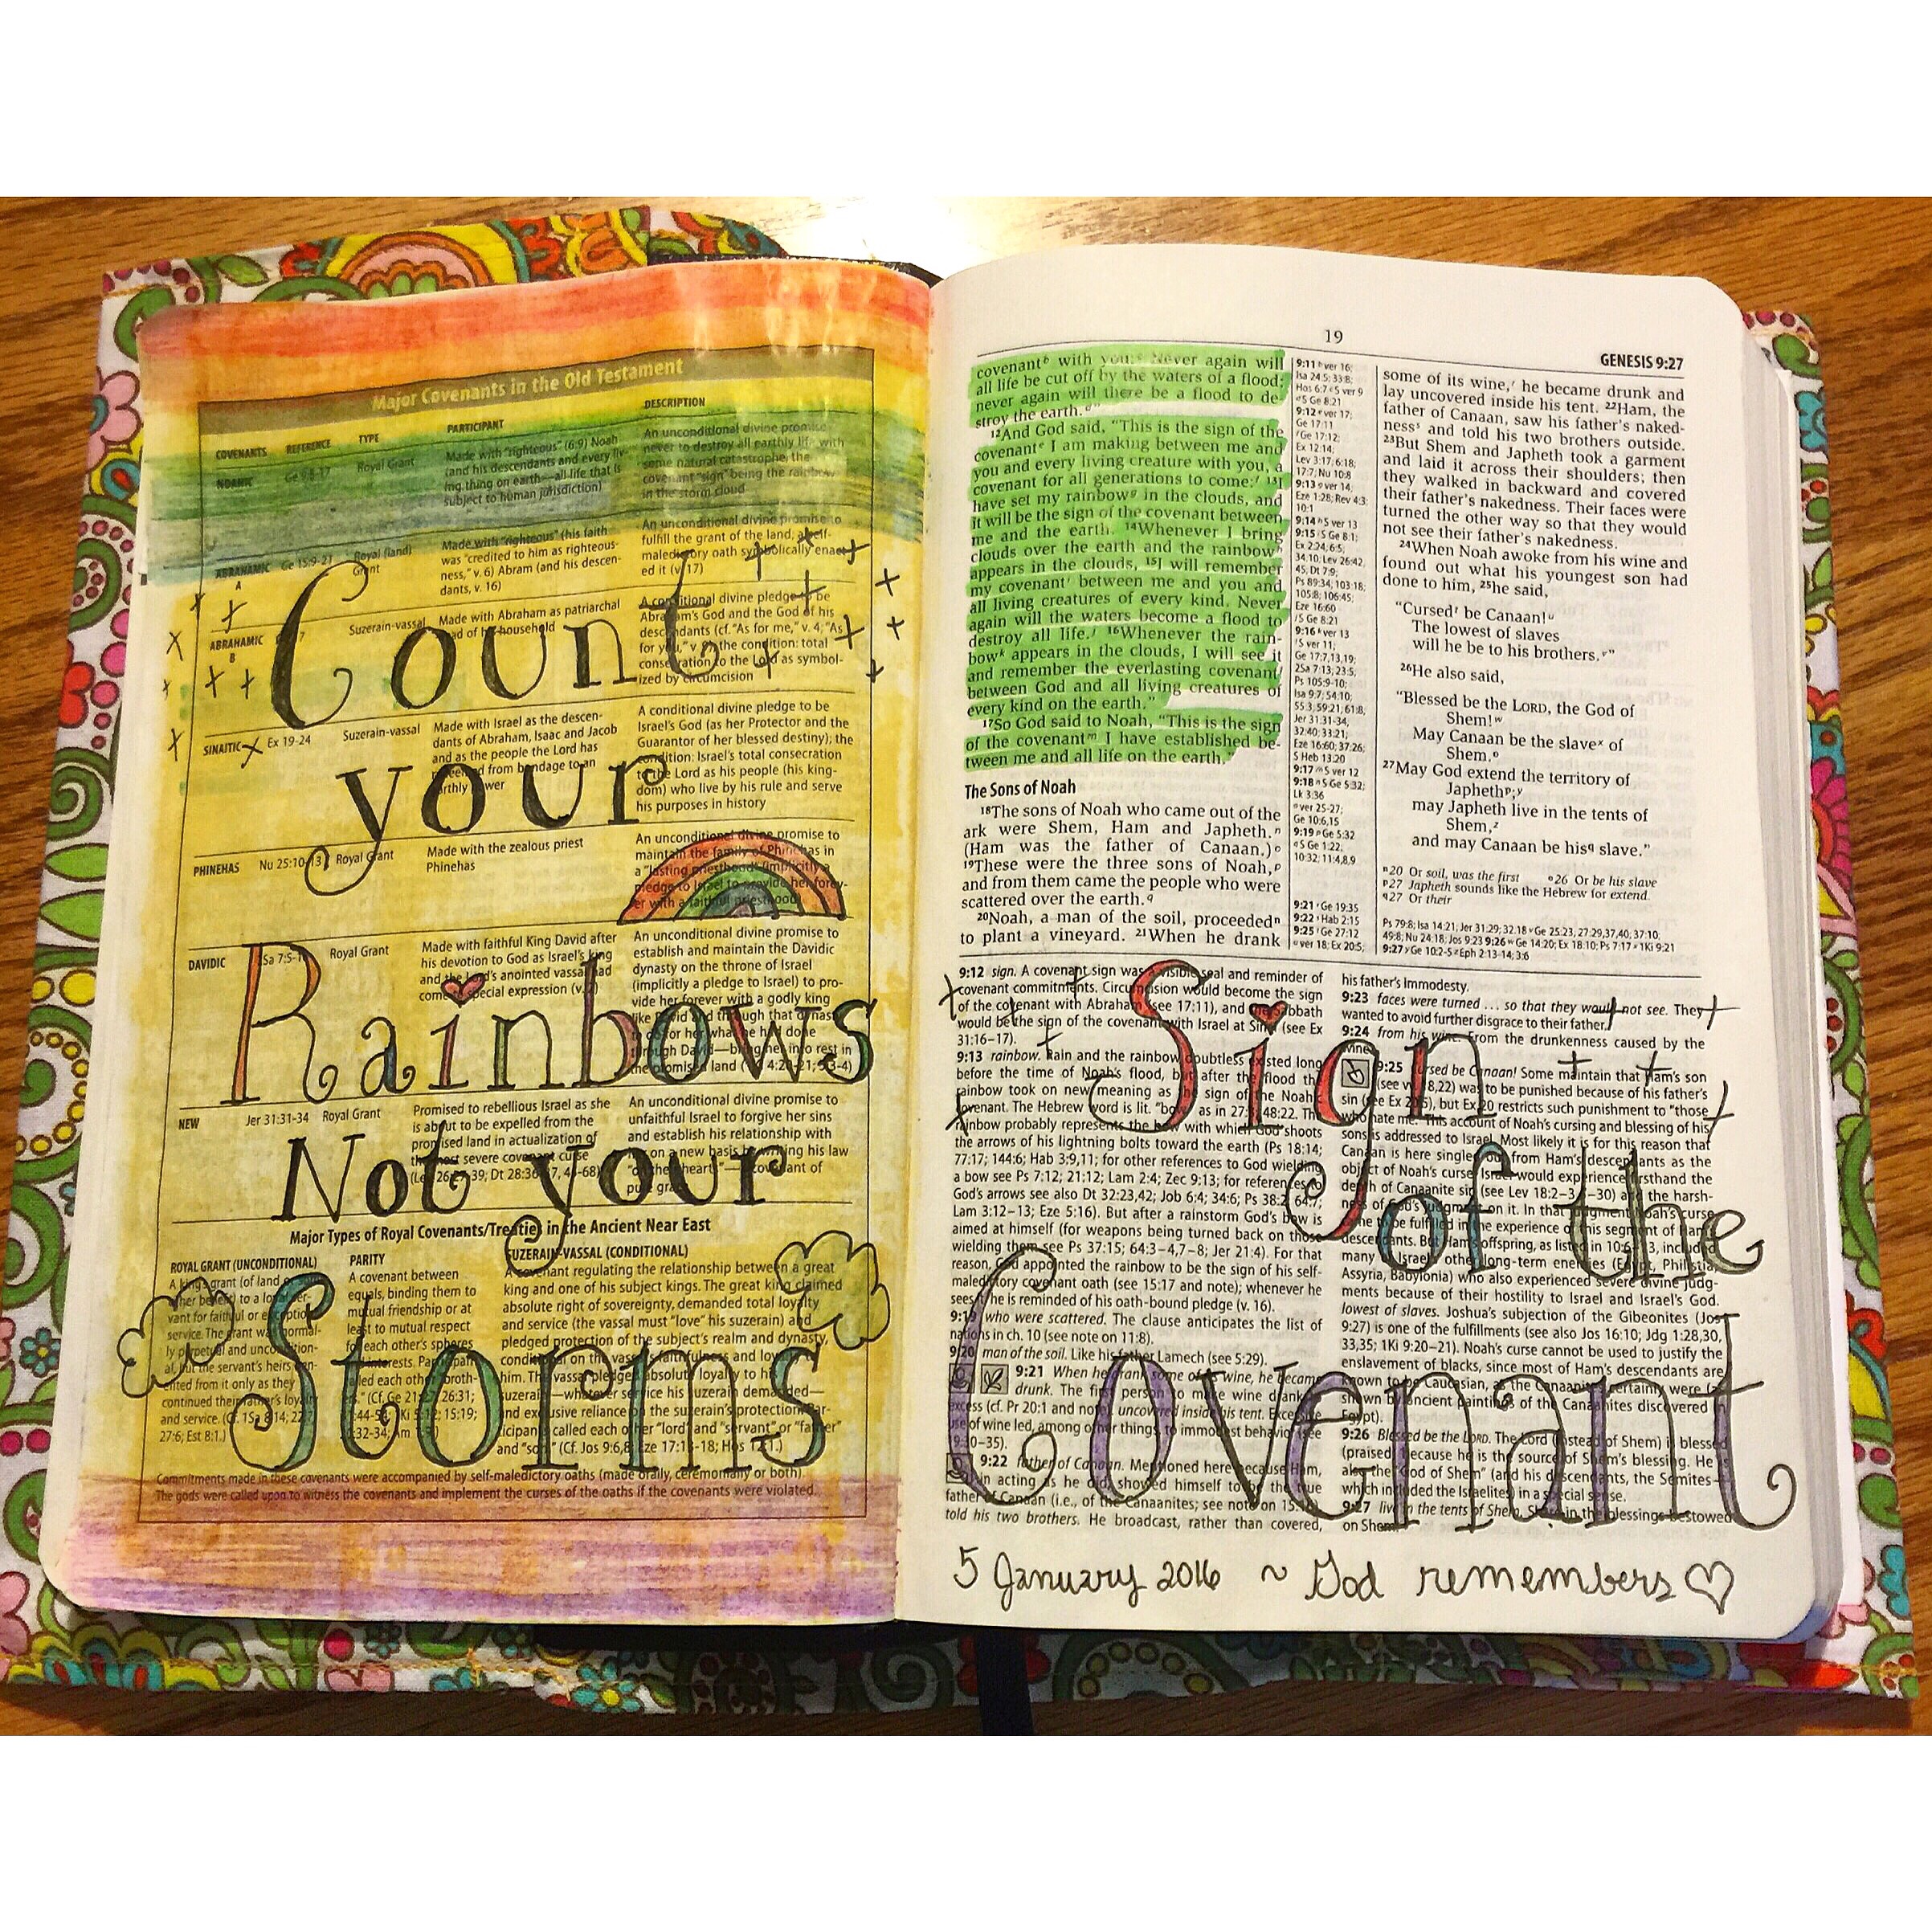 Major Covenants in the Old Testament
COVENANTS REFERENCE TYPE PARTICIPANT DESCRIPTION
NOAHIC Ge 9:8-17 Royal Grant
Made with "righteous" (6:9) Noah
(and his descendants and every liv-
ing thing on earth—all life that is
subject to human jurisdiction)
An unconditional divine promise
never to destroy all earthly life with
some natural catastrophe; the
covenant "sign" being the rainbow
in the storm cloud
ABRAHAMIC A Ge 15:9-21 Royal (land) Grant
Made with "righteous" (his faith
was "credited to him as righteous-
ness," v. 6) Abram (and his descen-
dants, v. 16)
An unconditional divine promise to
fulfill the grant of the land; a self-
maledictory oath symbolically enact-
ed it (v. 17)
ABRAHAMIC B Suzerain-vassal
Made with Abraham as patriarchal
head of his household
A conditional divine pledge to be
Abraham's God and the God of his
descendants (cf. "As for me," v. 4; "As
for you," v. the condition: total
consecration to the Lord as symbol-
ized by circumcision
SINAITIC Ex 19-24 Suzerain-vassal
Made with Israel as the descen-
dants of Abraham, Isaac and Jacob
and as the people the Lord has
redeemed from bondage to an
earthly power
A conditional divine pledge to be
Israel's God (as her Protector and the
Guarantor of her blessed destiny); the
condition: Israel's total consecration
to the Lord as his people (his king-
dom) who live by his rule and serve
his purposes in history
PHINEHAS Nu 25:10-13 Royal Grant
Made with the zealous priest
Phinehas
An unconditional divine promise to
maintain the family of Phinehas in
a "lasting priesthood" (implicitly a
pledge to Israel to provide her forev-
er with a faithful priesthood)
DAVIDIC Royal Grant
Made with faithful King David after
his devotion to God as Israel's king
and the Lord's anointed vassal had
come special expression
An unconditional divine promise to
establish and maintain the Davidic
dynasty on the throne of Israel
(implicitly a pledge to Israel) to pro-
vide her forever with a godly king
like David and through that dynasty
to do for her what he had done
through David—bring her into rest in
the promised land
NEW Jer 31:31-34 Royal Grant
Promised to rebellious Israel as she
is about to be expelled from the
promised land in actualization of
the most severe covenant curse
An unconditional divine promise to
unfaithful Israel to forgive her sins
and establish his relationship with
her on a new basis by writing his law
"on their hearts"—a covenant of
pure grace
Count
your
Rainbows
Not your
Storms
Major Types of Royal Covenants/Treaties in the Ancient Near East
ROYAL GRANT (UNCONDITIONAL)
A king's grant (of land or some
other benefit) to a loyal ser-
vant for faithful or exceptional
service. The grant was normal-
ly perpetual and uncondition-
al, but the servant's heirs ben-
efited from it only as they
continued their father's loyalty
and service.
27:6; Est 8:1.)
PARITY
A covenant between
equals, binding them to
mutual friendship or at
least to mutual respect
for each other's spheres
and interests. Participants
called each other "broth-
SUZERAIN-VASSAL (CONDITIONAL)
A covenant regulating the relationship between a great
king and one of his subject kings. The great king claimed
absolute right of sovereignty, demanded total loyalty
and service (the vassal must "love" his suzerain) and
pledged protection of the subject's realm and dynasty,
conditional on the vassal's faithfulness and loyalty to
him. The vassal pledged absolute loyalty to his
suzerain—whatever service his suzerain demanded—
and exclusive reliance on the suzerain's protection. Par-
ticipants called each other "lord" and "servant" or "father"
and "son."
Commitments made in these covenants were accompanied by self-maledictory oaths (made orally, ceremonially or both).
The gods were called upon to witness the covenants and implement the curses of the oaths if the covenants were violated.
19
GENESIS 9:27
covenant with you: Never again will
all life be cut off by the waters of a flood;
never again will there be a flood to de-
stroy the earth."
12And God said, "This is the sign of the
covenant I am making between me and
you and every living creature with you, a
covenant for all generations to come: 13I
have set my rainbow in the clouds, and
it will be the sign of the covenant between
me and the earth. 14Whenever I bring
clouds over the earth and the rainbow
appears in the clouds, 15I will remember
my covenant between me and you and
all living creatures of every kind. Never
again will the waters become a flood to
destroy all life. 16Whenever the rain-
bow appears in the clouds, I will see it
and remember the everlasting covenant
between God and all living creatures of
every kind on the earth."
17So God said to Noah, "This is the sign
of the covenant I have established be-
tween me and all life on the earth."
The Sons of Noah
18The sons of Noah who came out of the
ark were Shem, Ham and Japheth.
(Ham was the father of Canaan.)
19These were the three sons of Noah,
and from them came the people who were
scattered over the earth.
20Noah, a man of the soil, proceeded
to plant a vineyard. 21When he drank
some of its wine, he became drunk and
lay uncovered inside his tent. 22Ham, the
father of Canaan, saw his father's naked-
ness and told his two brothers outside.
23But Shem and Japheth took a garment
and laid it across their shoulders; then
they walked in backward and covered
their father's nakedness. Their faces were
turned the other way so that they would
not see their father's nakedness.
24When Noah awoke from his wine and
found out what his youngest son had
done to him, 25he said,
"Cursed be Canaan!
The lowest of slaves
will he be to his brothers."
26He also said,
"Blessed be the LORD, the God of
Shem!
May Canaan be the slave of
Shem.
27May God extend the territory of
Japheth;
may Japheth live in the tents of
Shem,
and may Canaan be his slave."
n20 Or soil, was the first o26 Or be his slave
p27 Japheth sounds like the Hebrew for extend.
q27 Or their
9:12 sign. A covenant sign was a visible seal and reminder of
covenant commitments. Circumcision would become the sign
of the covenant with Abraham (see 17:11), and the Sabbath
would be the sign of the covenant with Israel at Sinai (see Ex
31:16–17).
9:13 rainbow. Rain and the rainbow doubtless existed long
before the time of Noah's flood, but after the flood the
rainbow took on new meaning as the sign of the Noahic
covenant. The Hebrew word is lit. "bow," as in 48:22. The
rainbow probably represents the bow with which God shoots
the arrows of his lightning bolts toward the earth (Ps 18:14;
77:17; 144:6; Hab 3:9,11; for other references to God wielding
a bow see Ps 7:12; 21:12; Lam 2:4; Zec 9:13; for references to
God's arrows see also Dt 32:23,42; Job 6:4; 34:6; Ps 38:2; 64:7;
Lam 3:12–13; Eze 5:16). But after a rainstorm God's bow is
aimed at himself (for weapons being turned back on those
wielding them see Ps 37:15; 64:3–4,7–8; Jer 21:4). For that
reason, God appointed the rainbow to be the sign of his self-
maledictory covenant oath (see 15:17 and note); whenever he
sees it he is reminded of his oath-bound pledge (v. 16).
9:19 who were scattered. The clause anticipates the list of
nations in ch. 10 (see note on 11:8).
9:20 man of the soil. Like his father Lamech (see 5:29).
9:21 When he drank some of its wine, he became
drunk. The first person to make wine drank to
excess (cf. Pr 20:1 and note). uncovered inside his tent. Excessive
use of wine led, among other things, to immodest behavior (see
9:22 father of Canaan. Mentioned here because Ham,
in acting as he did, showed himself to be the true
father of Canaan (i.e., of the Canaanites; see note on 15:16).
told his two brothers. He broadcast, rather than covered,
his father's immodesty.
9:23 faces were turned . . . so that they would not see. They
wanted to avoid further disgrace to their father.
9:24 from his wine. From the drunkenness caused by the
wine.
9:25 Cursed be Canaan! Some maintain that Ham's son
was to be punished because of his father's
sin (see Ex 20:5), but Ex 20 restricts such punishment to "those
who hate me." This account of Noah's cursing and blessing of his
sons is addressed to Israel. Most likely it is for this reason that
Canaan is here singled out from Ham's descendants as the
object of Noah's curse. Israel would experience firsthand the
depth of Canaanite sin (see Lev 18:2–3, –30) and the harsh-
ness of God's judgment on it. In that judgment Noah's curse
came to be fulfilled in the experience of this segment of Ham's
descendants. But Ham's offspring, as listed in 10:6–13, included
many of Israel's other long-term enemies (Egypt, Philistia,
Assyria, Babylonia) who also experienced severe divine judg-
ments because of their hostility to Israel and Israel's God.
lowest of slaves. Joshua's subjection of the Gibeonites (Jos
9:27) is one of the fulfillments (see also Jos 16:10; Jdg 1:28,30,
33,35; 1Ki 9:20–21). Noah's curse cannot be used to justify the
enslavement of blacks, since most of Ham's descendants are
known to be Caucasian, as the Canaanites certainly were (as
shown by ancient paintings of the Canaanites discovered in
Egypt).
9:26 Blessed be the LORD. The Lord (instead of Shem) is blessed
(praised) because he is the source of Shem's blessing. He is
also the "God of Shem" (and his descendants, the Semites—
which included the Israelites) in a special sense.
9:27 live in the tents of Shem. Share in the blessings bestowed
on Shem.
Sign
of the
Covenant
5 January 2016 ~ God remembers ♡